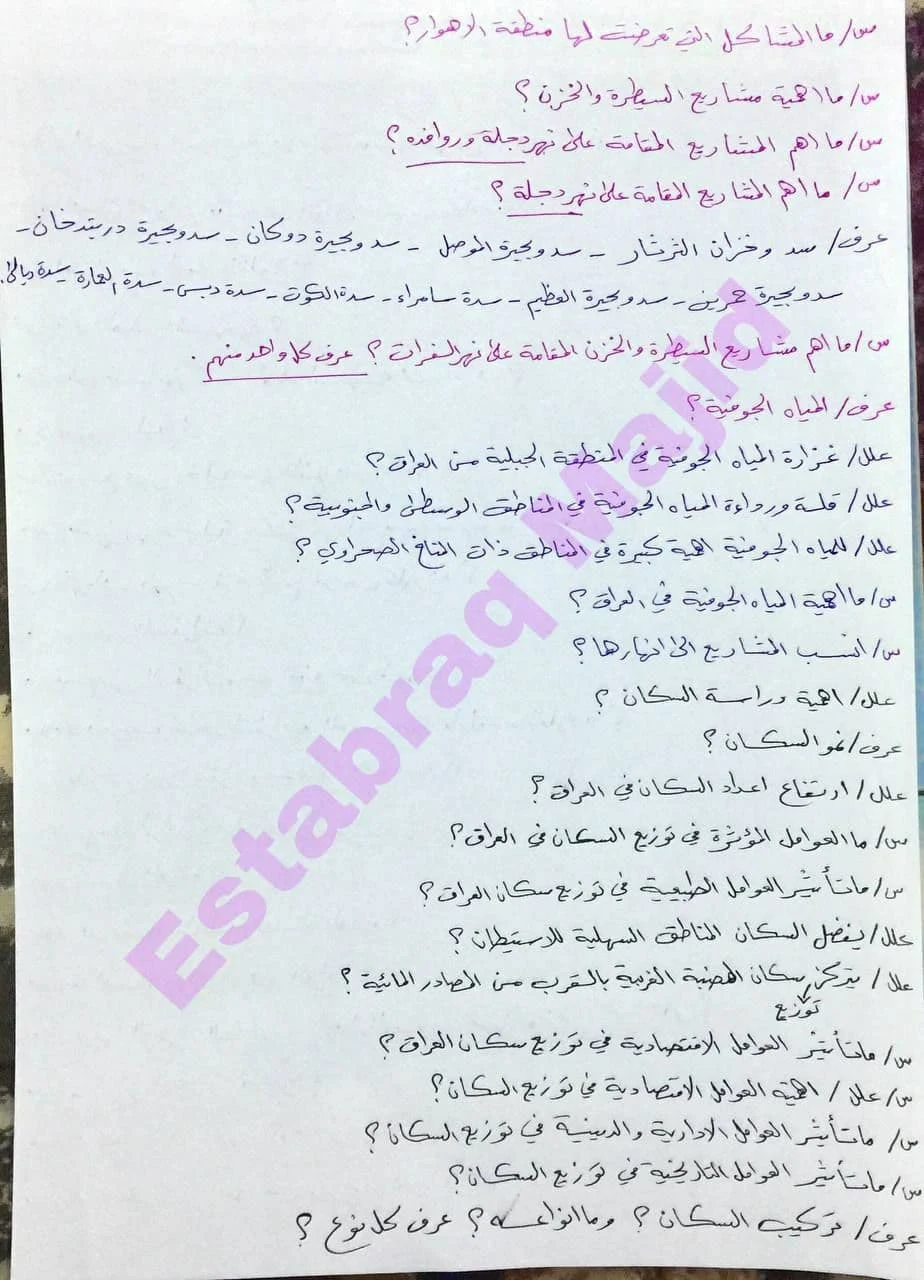 س/ ما المشاكل التي تعرضت لها منطقة الاهوار؟
س/ ما اهمية مشاريع السيطرة والخزن؟
س/ ما اهم المشاريع المقامة على نهر دجلة وروافده؟
س/ ما اهم المشاريع المقامة على نهر دجلة؟
عرف/ سد وخزان الثرثار - سد وبحيرة الموصل - سد وبحيرة دوكان - سد وبحيرة دربندخان -
سد وبحيرة حمرين - سد وبحيرة العظيم - سدة سامراء - سدة الكوت - سدة دبس - سدة العمارة - سدة ديالى.
س/ ما اهم مشاريع السيطرة والخزن المقامة على نهر الفرات؟ عرف كل واحد منهم.
عرف/ المياه الجوفية؟
علل/ غزارة المياه الجوفية في المنطقة الجبلية من العراق؟
علل/ قلة ورداءة المياه الجوفية في المناطق الوسطى والجنوبية؟
علل/ للمياه الجوفية اهمية كبيرة في المناطق ذات المناخ الصحراوي؟
س/ ما اهمية المياه الجوفية في العراق؟
س/ انسب المشاريع الى انهارها؟
علل/ اهمية دراسة السكان؟
عرف/ نمو السكان؟
علل/ ارتفاع اعداد السكان في العراق؟
س/ ما العوامل المؤثرة في توزيع السكان في العراق؟
س/ ما تأثير العوامل الطبيعية في توزيع سكان العراق؟
علل/ يفضل السكان المناطق السهلية للاستيطان؟
علل/ يتركز سكان الهضبة الغربية بالقرب من المصادر المائية؟
توزيع
س/ ما تأثير العوامل الاقتصادية في توزيع سكان العراق؟
س/ علل/ اهمية العوامل الاقتصادية في توزيع السكان؟
س/ ما تأثير العوامل الادارية والدينية في توزيع السكان؟
س/ ما تأثير العوامل التاريخية في توزيع السكان؟
عرف/ تركيب السكان؟ وما انواعه؟ عرف كل نوع؟
Estabraq Majid